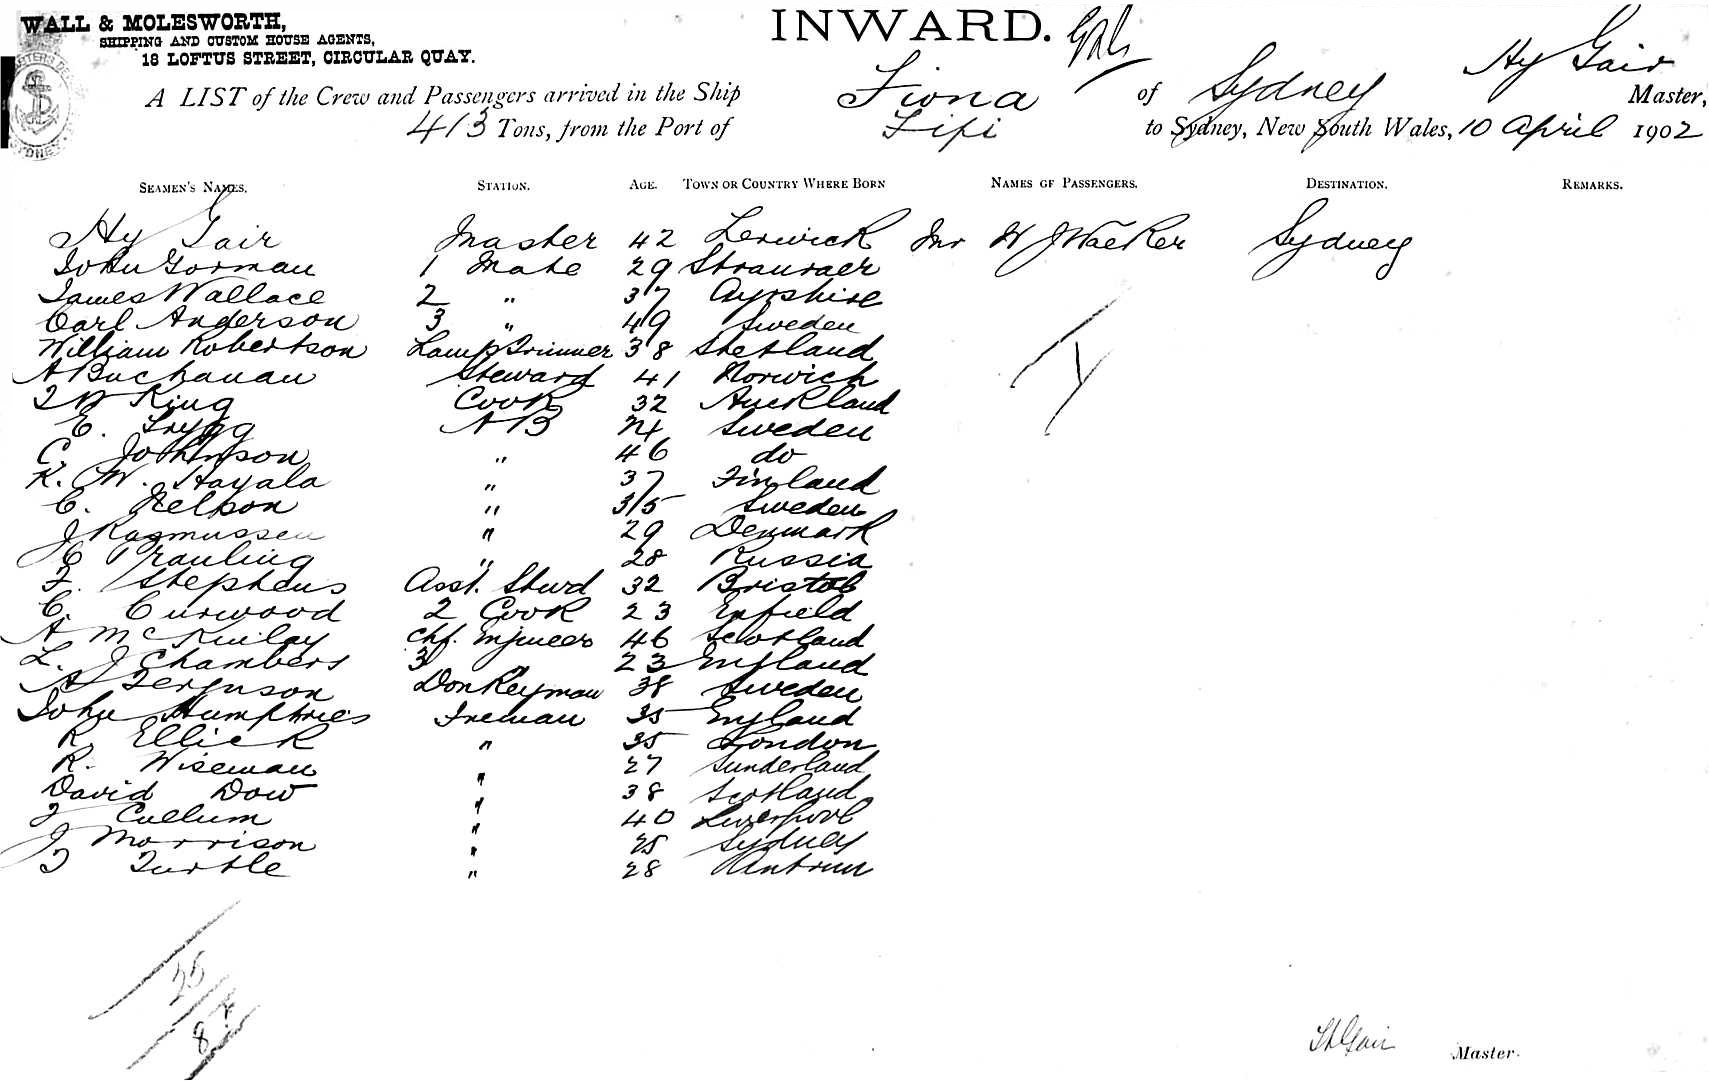 WALL & MOLESWORTH,
SHIPPING AND CUSTOM HOUSE AGENTS,
18 LOFTUS STREET, CIRCULAR QUAY.
INWARD.
A LIST of the Crew and Passengers arrived in the Ship Fiona of Sydney Hy Gair Master,
413 Tons, from the Port of Fiji to Sydney, New South Wales, 10 April 1902
SEAMEN'S NAMES. STATION. AGE. TOWN OR COUNTRY WHERE BORN NAMES OF PASSENGERS. DESTINATION. REMARKS.
Hy Gair Master 42 Lerwick Mr W J Walker Sydney
John Gorman 1 Mate 29 Stranraer
James Wallace 2 " 37 Ayrshire
Carl Anderson 3 " 49 Sweden
William Robertson Lamp Trimmer 38 Shetland
A Buchanan Steward 41 Norwich
King Cook 32 Auckland
E. Trygg A B 24 Sweden
C. Johnson " 46 do
K. W. Hayala " 37 Finland
C. Nelson " 35 Sweden
J Rasmussen " 29 Denmark
C Prauling " 28 Russia
F. Stephens Asst. Stwd 32 Bristol
C. Curwood 2 Cook 23 Enfield
A McKinlay Chf. Engineer 46 Scotland
L. J Chambers 3 " 23 England
A Ferguson Donkeyman 38 Sweden
John Humphries Fireman 35 England
R. Ellick " 35 London
R. Wiseman " 27 Sunderland
David Dow " 38 Scotland
Cullum " 40 Liverpool
J Morrison " 25 Sydney
T Turtle " 28 Antrim
25
8
Gair Master.